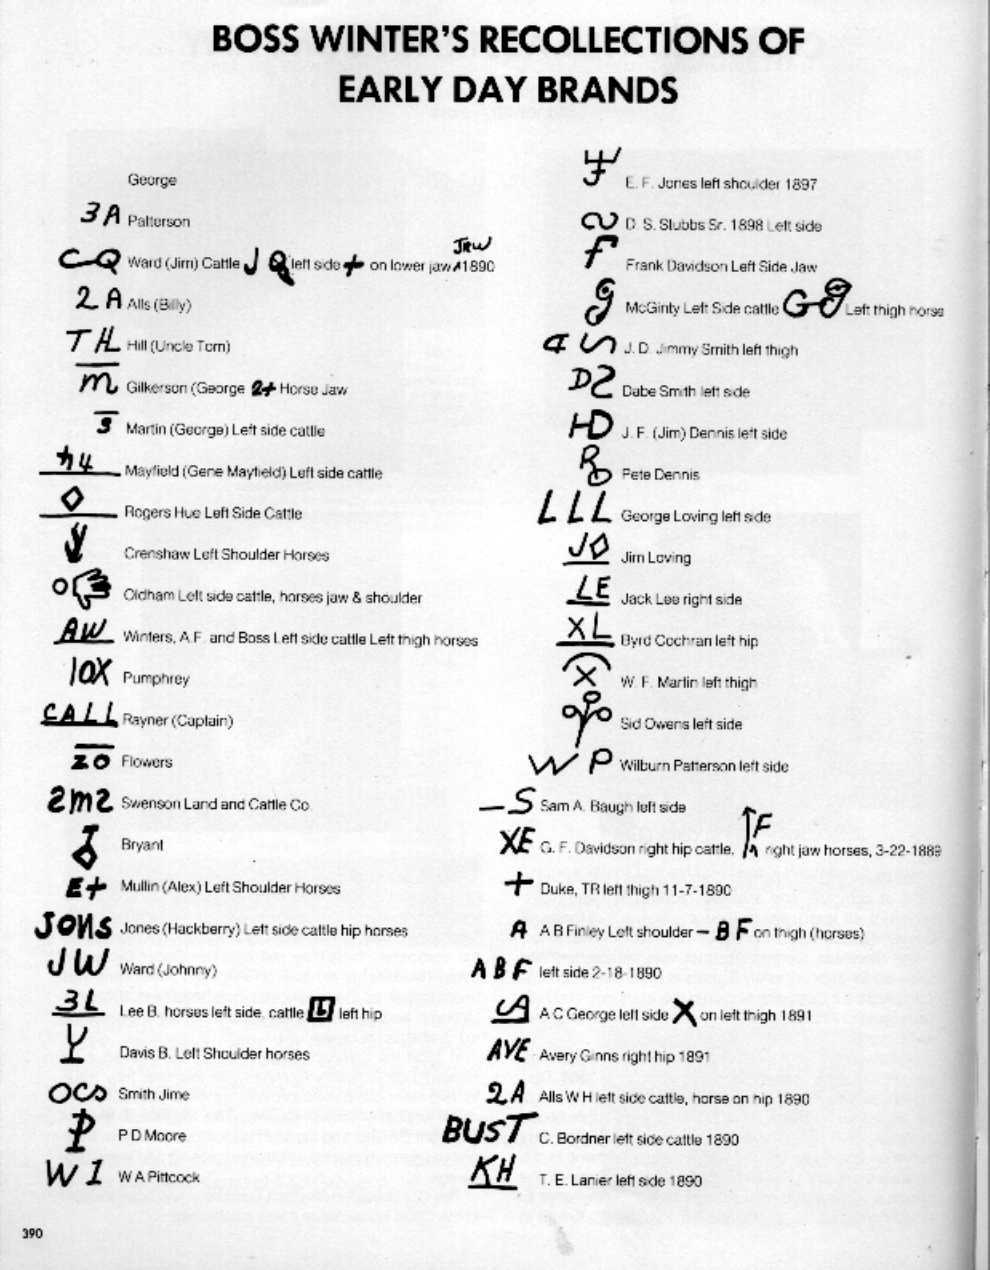 BOSS WINTER'S RECOLLECTIONS OF
EARLY DAY BRANDS
George
3 A Patterson
C Q Ward (Jim) Cattle J Q left side + on lower jaw JRW 1890
2 A Alls (Billy)
T H L Hill (Uncle Tom)
m Gilkerson (George 2+ Horse Jaw
3 Martin (George) Left side cattle
h4 Mayfield (Gene Mayfield) Left side cattle
Rogers Hue Left Side Cattle
Crenshaw Left Shoulder Horses
Oldham Left side cattle, horses jaw & shoulder
AW Winters, A.F. and Boss Left side cattle Left thigh horses
10X Pumphrey
CALL Rayner (Captain)
20 Flowers
2m2 Swenson Land and Cattle Co.
Bryant
E+ Mullin (Alex) Left Shoulder Horses
JONS Jones (Hackberry) Left side cattle hip horses
JW Ward (Johnny)
3L Lee B. horses left side, cattle L left hip
Y Davis B. Left Shoulder horses
OCS Smith Jime
P P D Moore
W I W A Pittcock
E. F. Jones left shoulder 1897
D. S. Stubbs Sr. 1898 Left side
f Frank Davidson Left Side Jaw
McGinty Left Side cattle Left thigh horse
J. D. Jimmy Smith left thigh
D2 Dabe Smith left side
HD J. F. (Jim) Dennis left side
Pete Dennis
LLL George Loving left side
JO Jim Loving
LE Jack Lee right side
XL Byrd Cochran left hip
X W. F. Martin left thigh
Sid Owens left side
W P Wilburn Patterson left side
–S Sam A. Baugh left side
XE G. F. Davidson right hip cattle, F right jaw horses, 3-22-1889
+ Duke, TR left thigh 11-7-1890
A A B Finley Left shoulder – B F on thigh (horses)
A B F left side 2-18-1890
A C George left side X on left thigh 1891
AVE Avery Ginns right hip 1891
2 A Alls W H left side cattle, horse on hip 1890
BUST C. Bordner left side cattle 1890
KH T. E. Lanier left side 1890
390